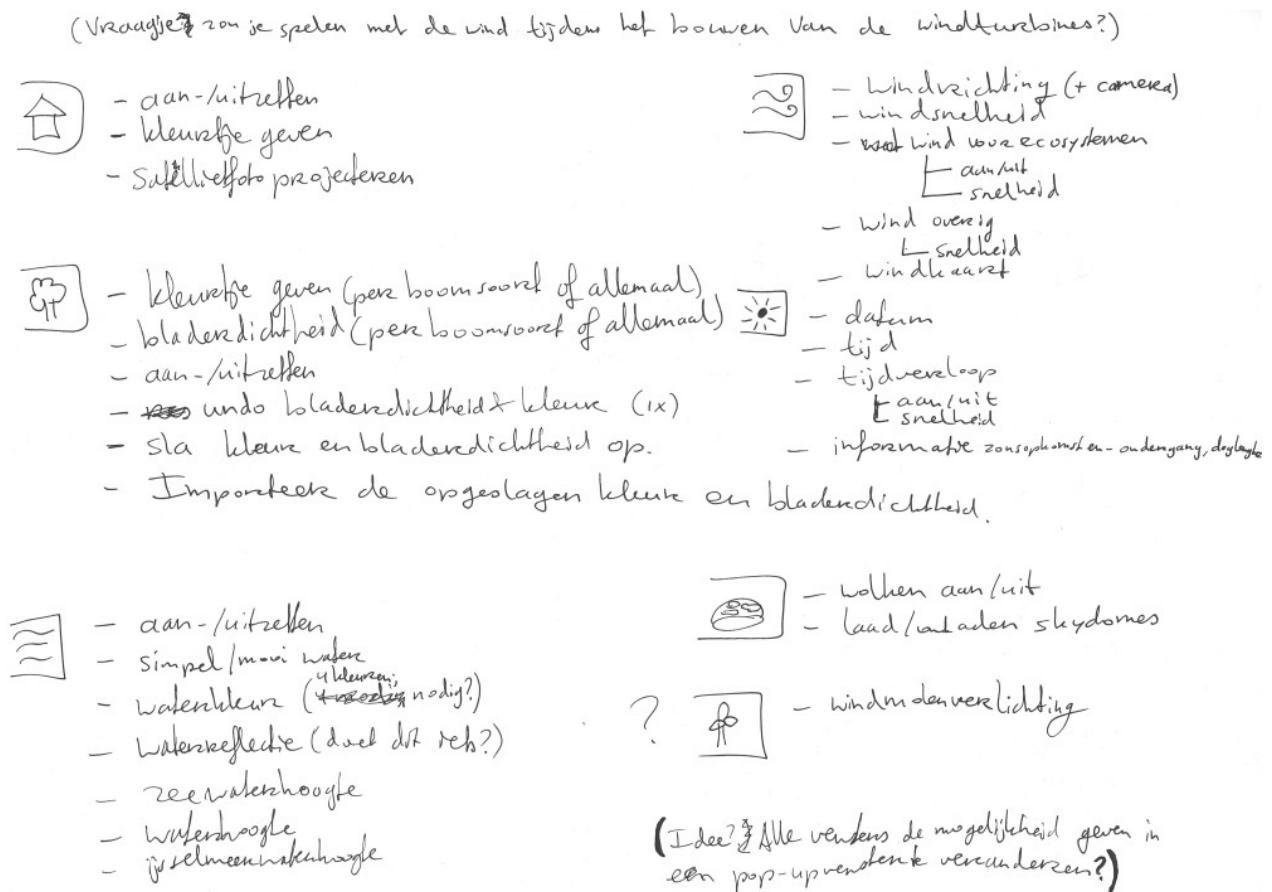 (Vraagje: zou je spelen met de wind tijdens het bouwen van de windturbines?)
- aan-/uitzetten
- kleurtje geven
- Satellietfoto projecteren
- kleurtje geven (per boomsoort of allemaal)
- bladerdichtheid (per boomsoort of allemaal)
- aan-/uitzetten
- undo bladerdichtheid & kleur (1x)
- sla kleur en bladerdichtheid op.
- Importeer de opgeslagen kleur en bladerdichtheid.
- aan-/uitzetten
- simpel/mooi water
- waterkleur (4 kleuren, nodig?)
- waterreflectie (doet dit iets?)
- zeewaterhoogte
- waterhoogte
- ijsselmeerwaterhoogte
- windrichting (+ camera)
- windsnelheid
- wind voor ecosystemen
aan/uit
snelheid
- wind overig
snelheid
- windkaart
- datum
- tijd
- tijdverloop
aan/uit
snelheid
- informatie zonsopkomst en -ondergang, daglengte
- wolken aan/uit
- laad/ontladen skydomes
?
- windmolenverlichting
(Idee? Alle vensters de mogelijkheid geven in
een pop-upvenster te veranderen?)